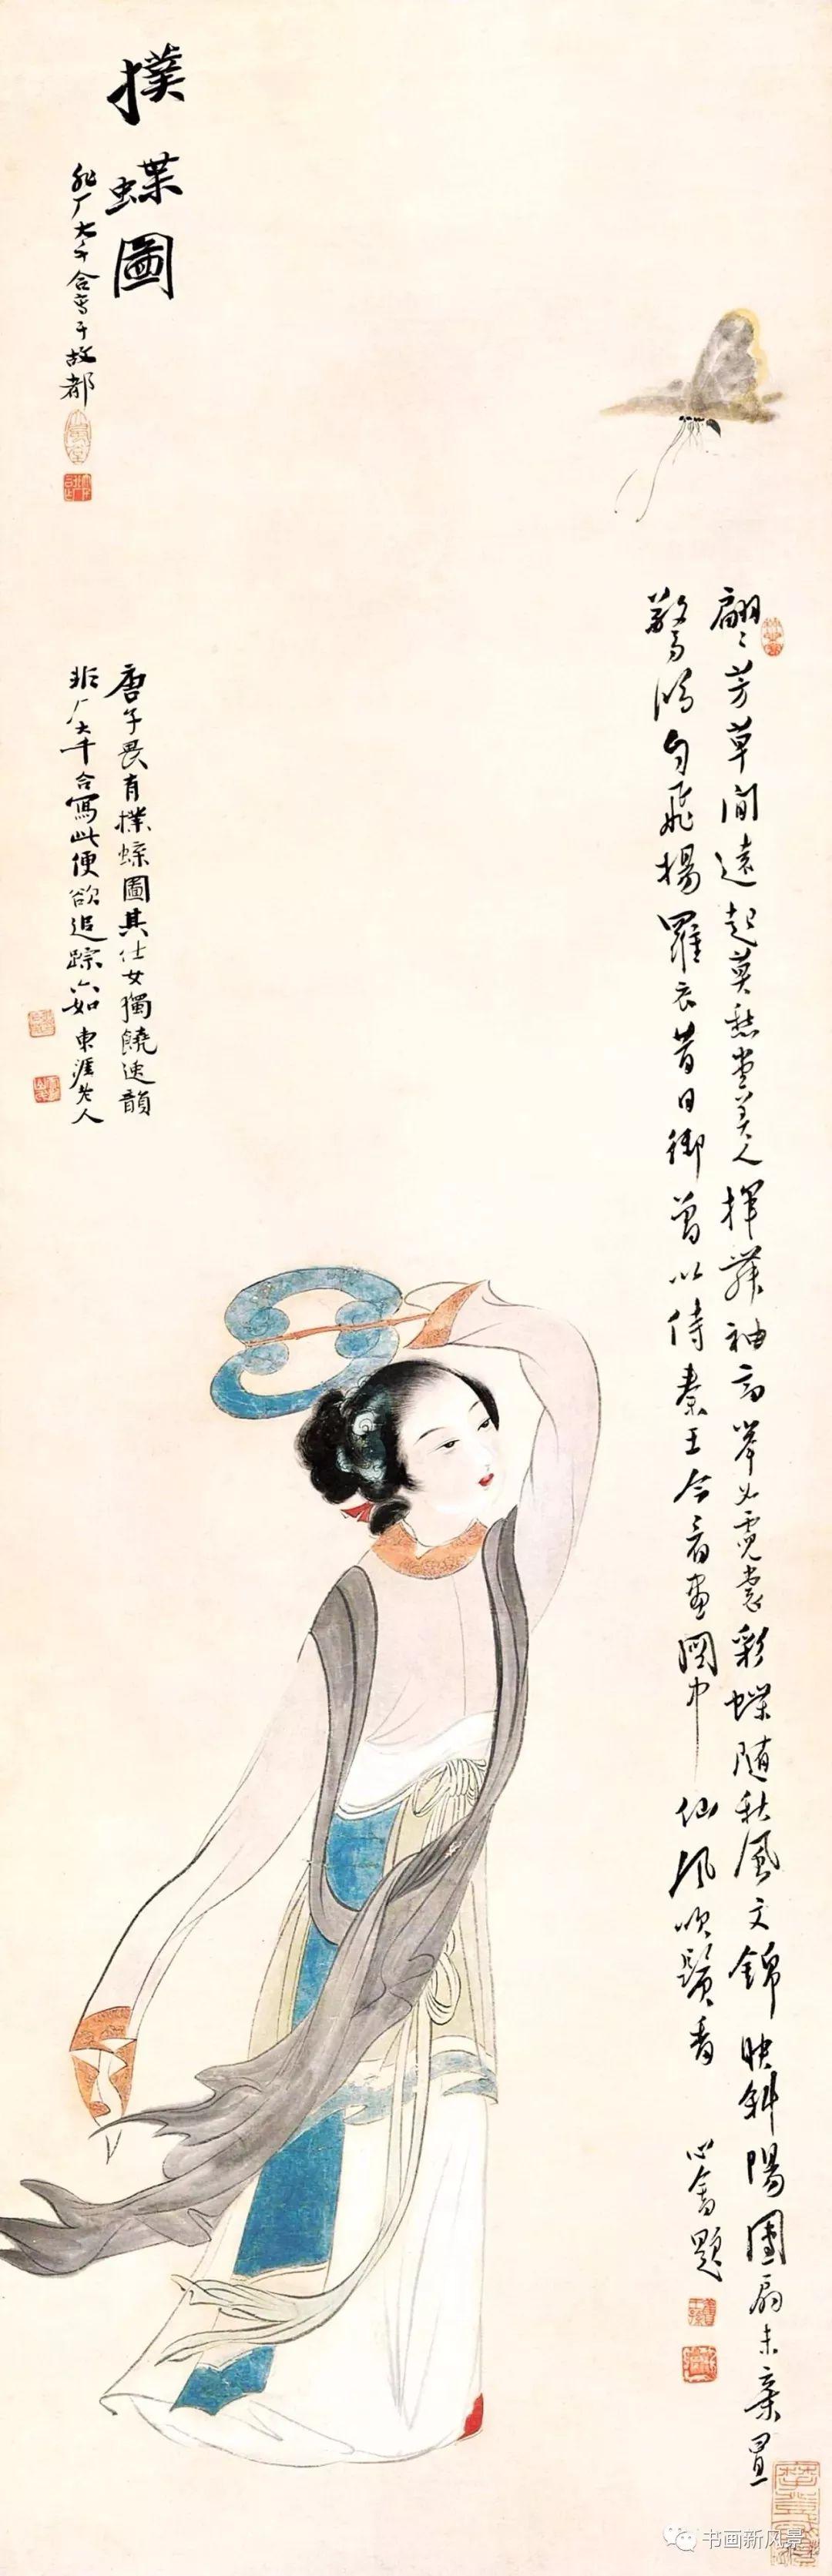 撲蝶圖
非厂大千合寫于故都
翩翩芳草間遠起莫愁堂美人揮舞袖高舉如霓裳彩蝶隨秋風文錦映斜陽團扇未棄置
驚鴻自飛揚羅衣昔日御曾以侍秦王今看畫圖中仙風吹鬢香 心畬題
唐子畏有撲蝶圖其仕女獨饒逸韻
非厂大千合寫此便欲追踪六如 東涯老人
书画新风景